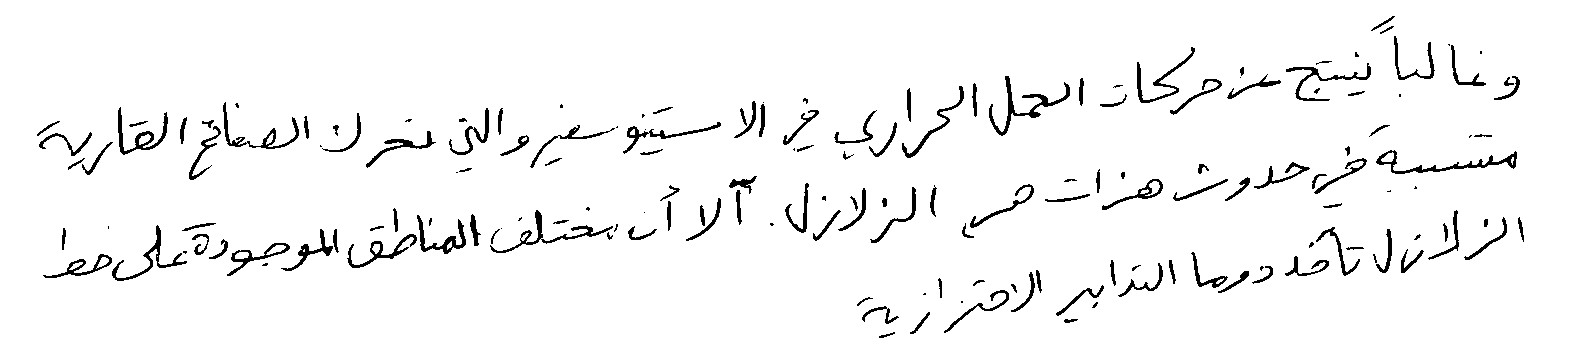 وغالباً ينتج عن حركات الحمل الحراري في الاستينوسفير والتي تحرك الصفائح القارية
متسببة في حدوث هزات هي الزلازل. آلا أن مختلف المناطق الموجودة على خط
الزلازل تأخذ دوما التدابير الاحترازية